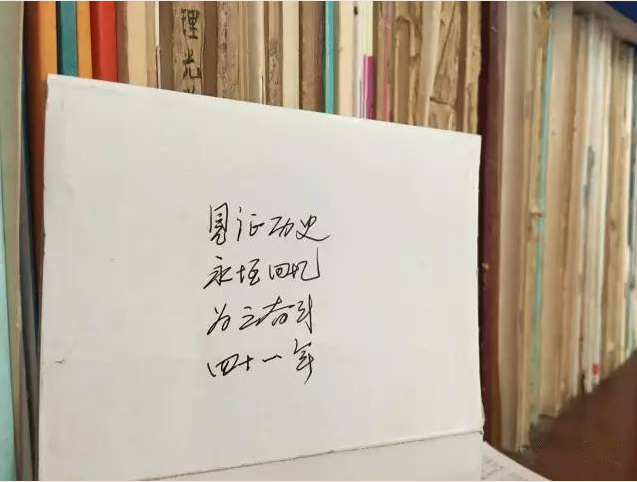 理光
图证历史
永恒回忆
为之奋斗
四十一年